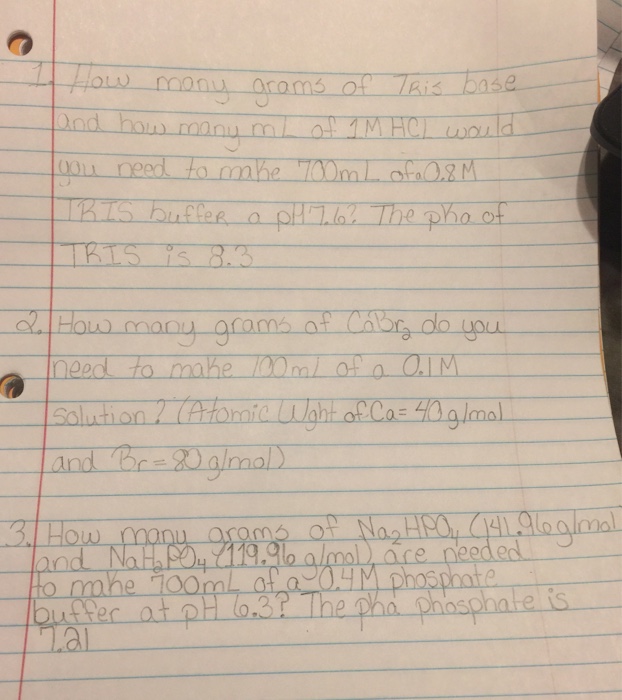 1. How many grams of TRis base
and how many mL of 1M HCl would
you need to make 700mL of a 0.8M
TRIS buffeR a pH 7.6? The pka of
TRIS is 8.3
2. How many grams of CaBr₂ do you
need to make 100ml of a 0.1M
solution? (Atomic Wght of Ca= 40g/mol
and Br=80g/mol)
3. How many grams of Na₂HPO₄ (141.96g/mol
and NaH₂PO₄ (119.96 g/mol) are needed
to make 700mL of a 0.4M phosphate
buffer at pH 6.3? The pka phosphate is
7.21